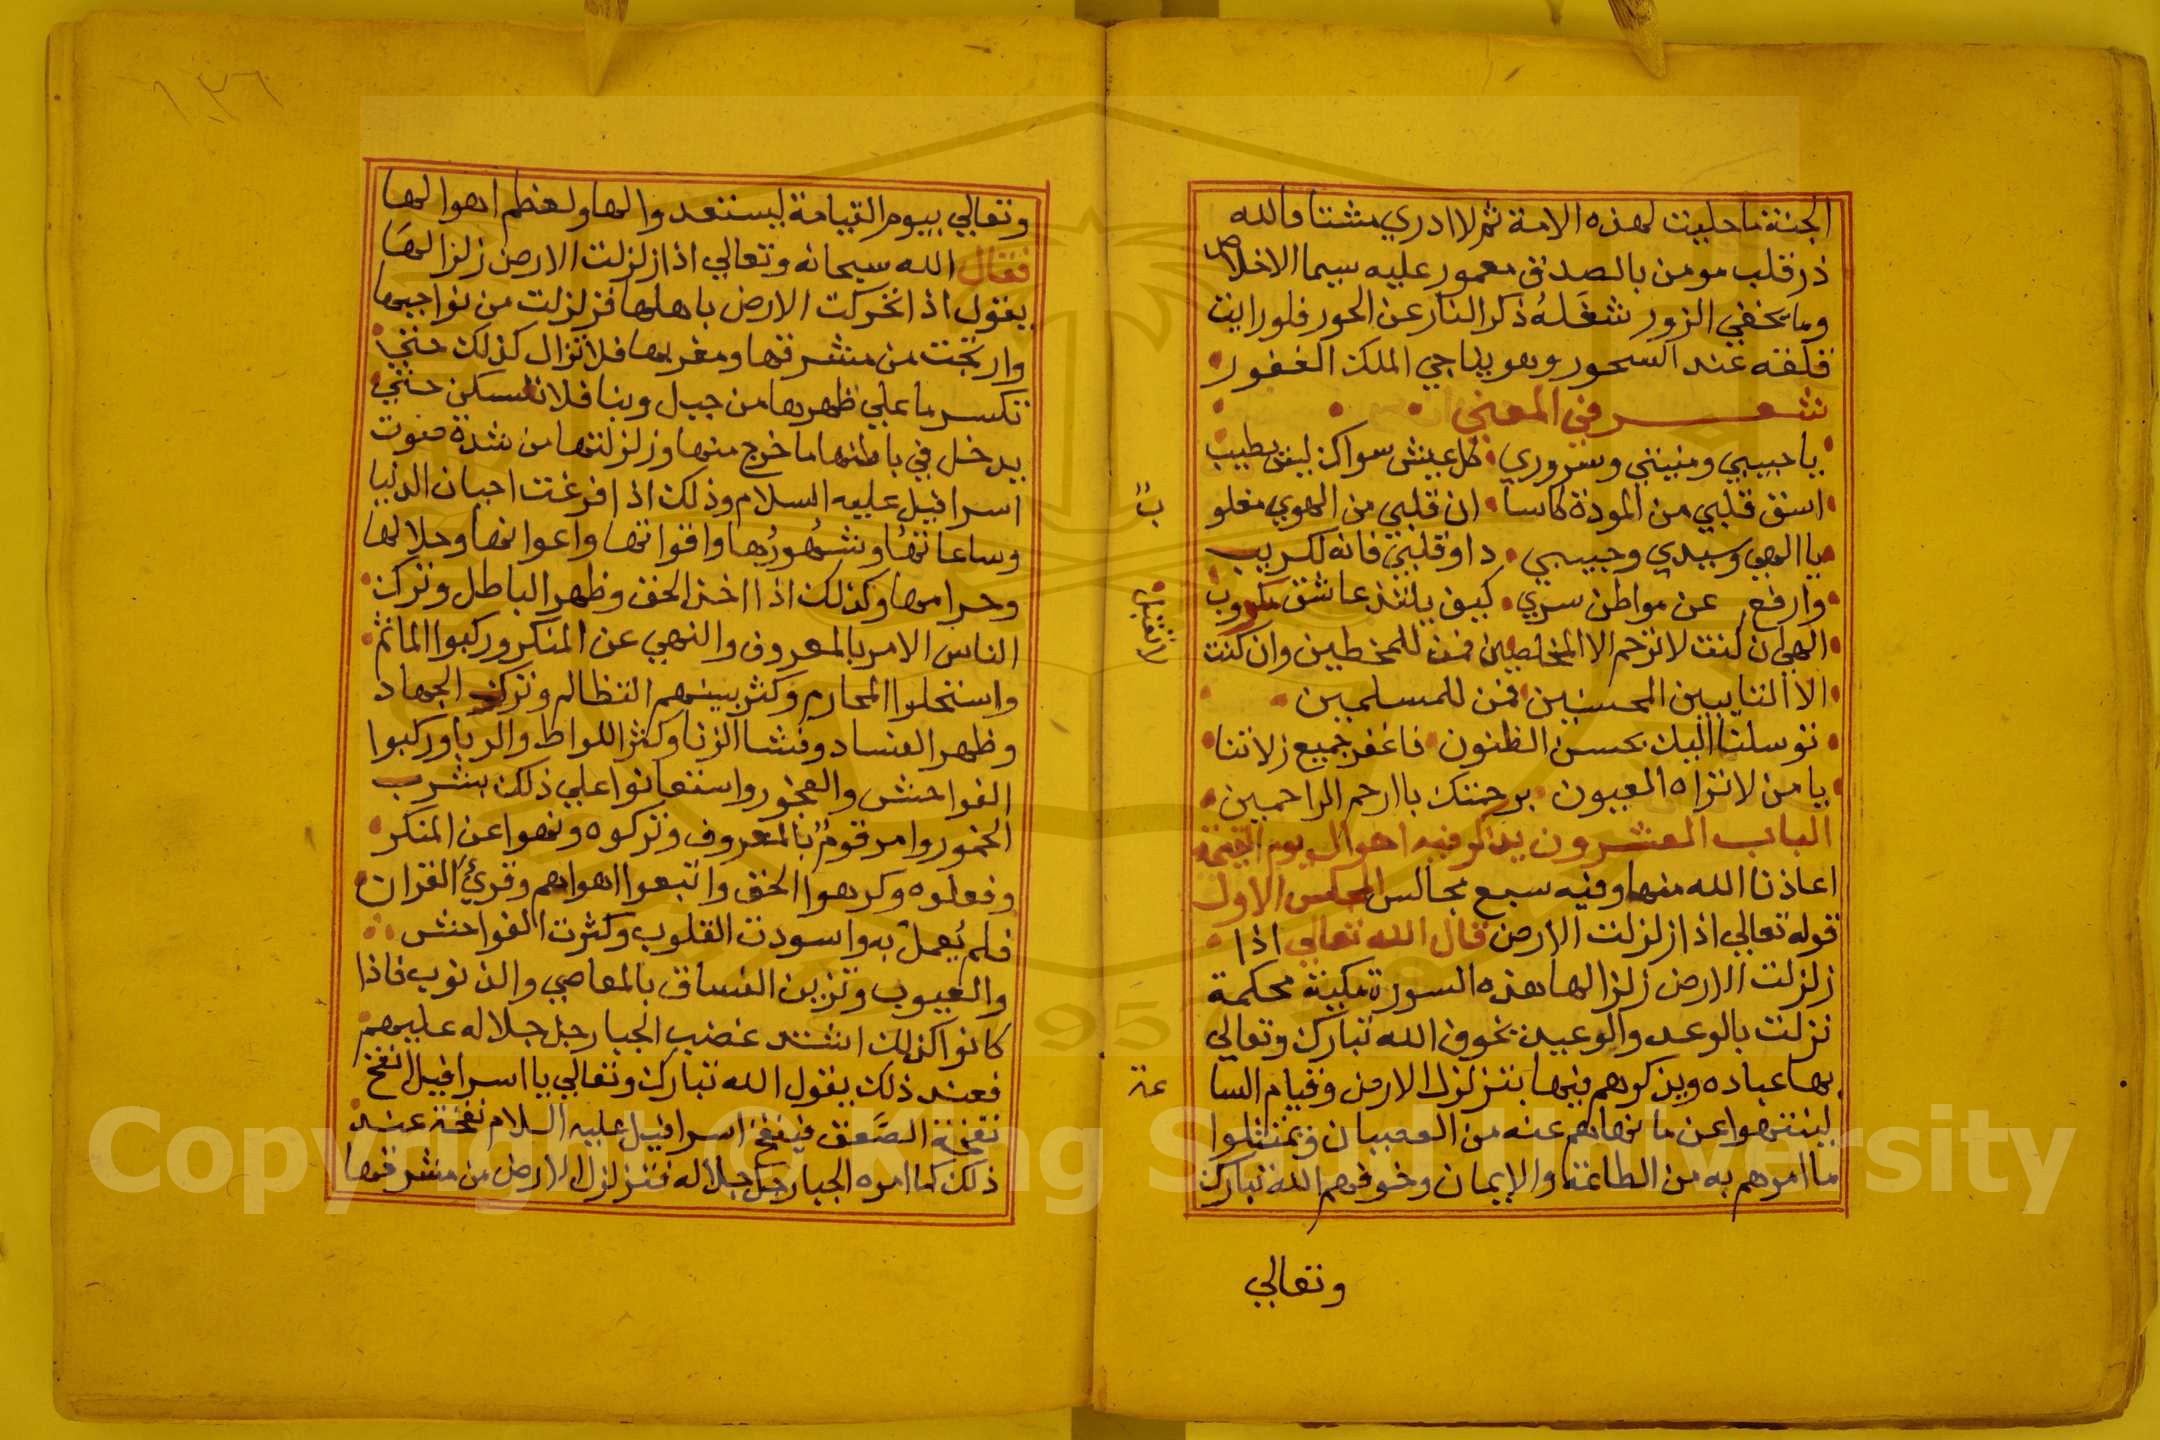 الجنة ما حليت لهذه الامة ثم لا ادري مشتاقا لله
ذر قلب مومن بالصدق معمور عليه سيما الاخلاص
وما يخفي الزور شغَلهُ ذكر النار عن الحور فلو رايت
قلقه عند السحور وهو يناجي الملك الغفور
شعر في المعني
يا حبيبي ومنيتي وسروري كل عيش سواك ليس يطيب
اسق قلبي من المودة كاسا ان قلبي من الهوي مغلو
بٌ
يا الهي وسيدي وحبيبي داو قلبي فانه لكريب
وارفع عن مواطن سري كيف يلتذ عاشق مكروب
الهي ان كنت لا ترحم الا المخلصين فمن للمخطين وان كنت
لا تقبل
الا التايبين المحسنين فمن للمسلمين
توسلنا اليك بحسن الظنون فاغفر جميع زلاتنا
يا من لا تراه العيون برحمتك يا ارحم الراحمين
الباب العشرون يذكر فيه اهوال يوم القيمة
اعاذنا الله منها وفيه سبع مجالس المجلس الاول
قوله تعالي اذا زلزلت الارض قال الله تعالي اذا
زلزلت الارض زلزالها هذه السورة مكية محكمة
نزلت بالوعد والوعيد يخوف الله تبارك وتعالي
بها عباده ويذكرهم فيها بتزلزل الارض وقيام السا
عة
لينتهوا عن ما نهاهم عنه من العصيان ويمتثلوا
ما امرهم به من الطاعة والايمان وخوفهم الله تبارك
وتعالي
١٣٦
وتعالي بيوم القيامة ليستعدوا لها ولعظم اهوالها
فقال الله سبحانه وتعالي اذا زلزلت الارض زلزالها
يقول اذا تحركت الارض باهلها فزلزلت من نواحيها
وارتجت من مشرقها ومغربها فلا تزال كذلك حتي
تكسر ما علي ظهرها من جبل وبنا فلا تسكن حتي
يدخل في باطنها ما خرج منها وزلزلتها من شدة صوت
اسرافيل عليه السلام وذلك اذا فرغت احيان الدنيا
وساعاتها وشُهورُها واقواتها واعوانها وحلالها
وحرامها وكذلك اذا اخذ الحق وظهر الباطل وترك
الناس الامر بالمعروف والنهي عن المنكر وركبوا الماثم
واستحلوا المحارم وكثر بينهم التظالم وترك الجهاد
وظهر الفساد وفشا الزنا وكثر اللواط والربا وركبوا
الفواحش والفجور واستعانوا علي ذلك بشرب
الخمور وامر قومٌ بالمعروف وتركوه ونهوا عن المنكر
وفعلوه وكرهوا الحق واتبعوا اهواهم وقرئ القران
فلم يُعمل به واسودت القلوب وكثرت الفواحش
والعيوب وتزين الفساق بالمعاصي والذنوب فاذا
كانوا كذلك اشتد غضب الجبار جل جلاله عليهم
فعند ذلك يقول الله تبارك وتعالي يا اسرافيل انفخ
نفخة الصَعق فينفخ اسرافيل عليه السلام نفخة عند
ذلك كما امره الجبار جل جلاله فتزلزل الارض من مشرقها
Copyright © King Saud University
1957